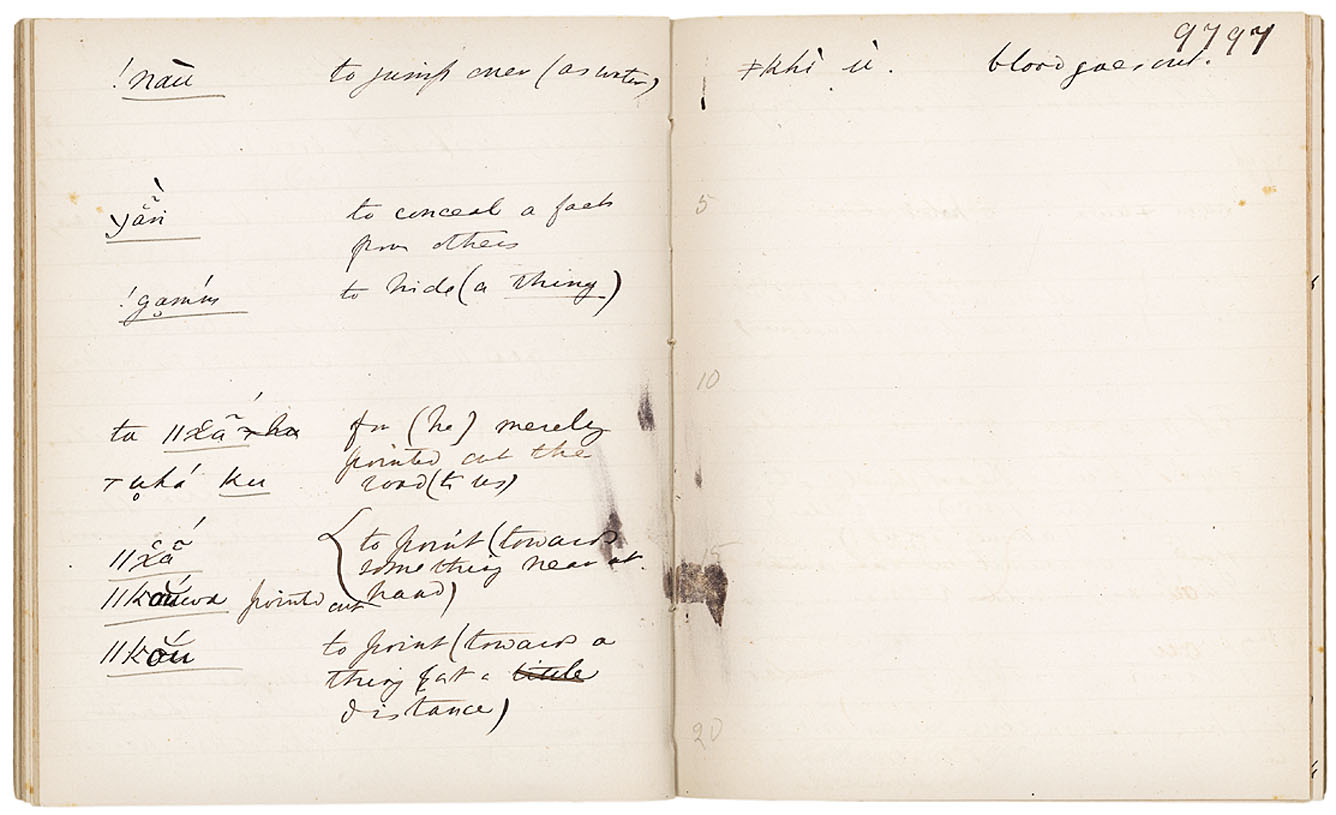 !nàu to jump over (as water)
yãũ to conceal a fact
from others
!gam'm to hide (a thing)
ta ǁxã́
for (he) merely
pointed out the
ꞇuhá ku road (to us)
ǁxã́ { to point (towards
something near at
hand)
ǁkáuwa pointed out
ǁkáu to point (towards a
thing at a little
distance)
9797
ǂkhì ù. blood goes out.
5
10
15
20